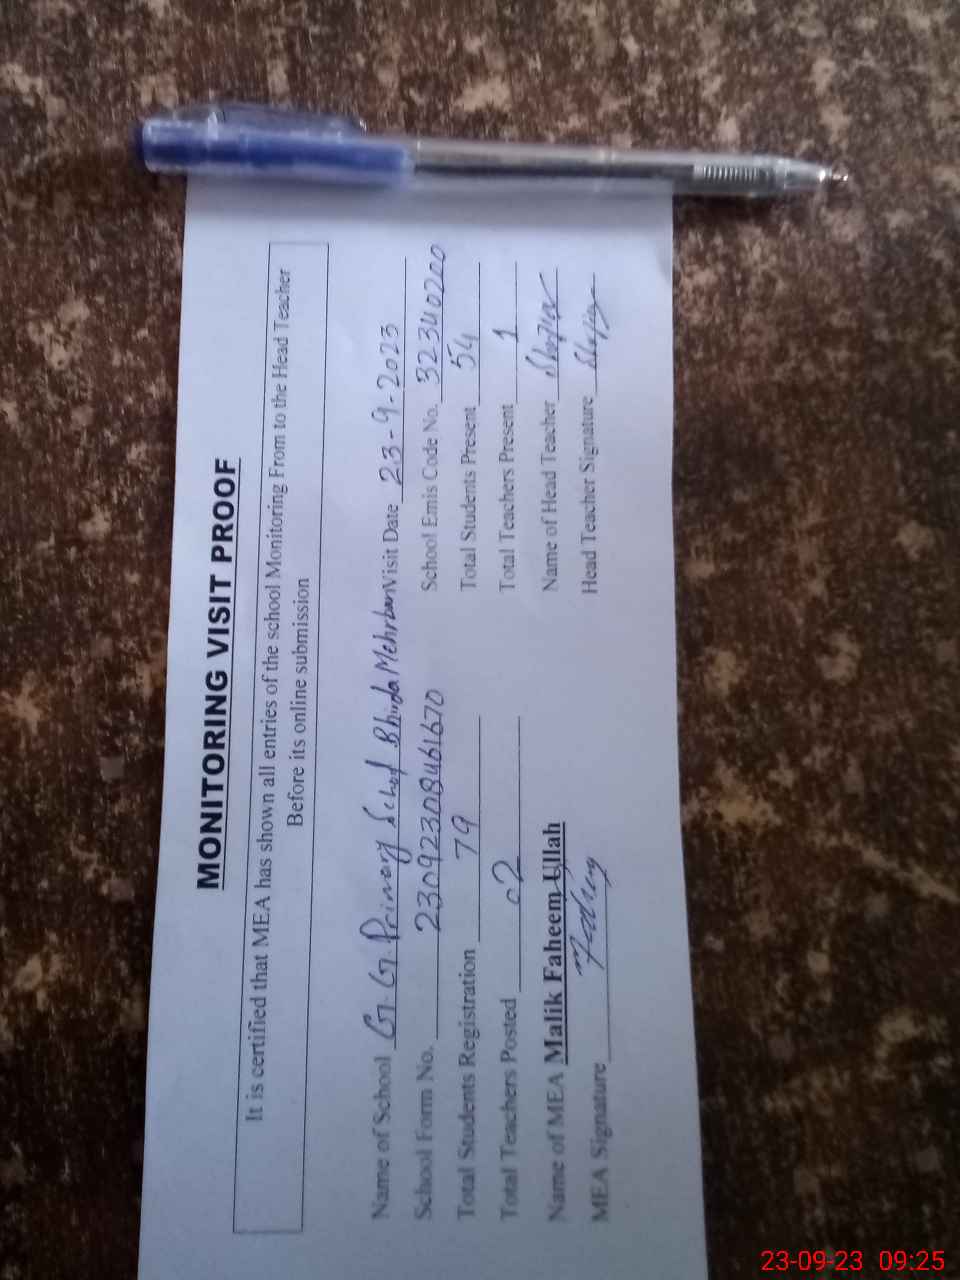 MONITORING VISIT PROOF
It is certified that MEA has shown all entries of the school Monitoring From to the Head Teacher
Before its online submission
Name of School G.G.Primary School Bhinda Mehrban Visit Date 23-9-2023
School Form No. 23092308461670 School Emis Code No. 32340200
Total Students Registration 79 Total Students Present 54
Total Teachers Posted 02 Total Teachers Present 1
Name of MEA Malik Faheem Ullah Name of Head Teacher
MEA Signature Head Teacher Signature
23-09-23 09:25